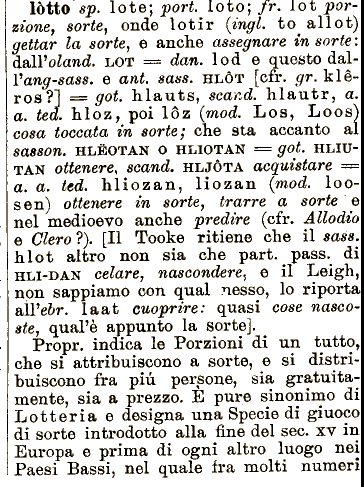 lòtto sp. lote; port. loto; fr. lot por-
zione, sorte, onde lotir (ingl. to allot)
gettar la sorte, e anche assegnare in sorte:
dall'oland. LOT = dan. lod e questo dal-
l'ang-sass. e ant. sass. HLÔT [cfr. gr. klê-
ros?] = got. hlauts, scand. hlautr, a.
a. ted. hloz, poi lôz (mod. Los, Loos)
cosa toccata in sorte; che sta accanto al
sasson. HLËOTAN O HLIOTAN = got. HLIU-
TAN ottenere, scand. HLJÔTA acquistare =
a. a. ted. hliozan, liozan (mod. loo-
sen) ottenere in sorte, trarre a sorte e
nel medioevo anche predire (cfr. Allodio
e Clero?). [Il Tooke ritiene che il sass.
hlot altro non sia che part. pass. di
HLI-DAN celare, nascondere, e il Leigh,
non sappiamo con qual nesso, lo riporta
all'ebr. laat cuoprire: quasi cose nasco-
ste, qual'è appunto la sorte].
Propr. indica le Porzioni di un tutto,
che si attribuiscono a sorte, e si distri-
buiscono fra piú persone, sia gratuita-
mente, sia a prezzo. È pure sinonimo di
Lotteria e designa una Specie di giuoco
di sorte introdotto alla fine del sec. XV in
Europa e prima di ogni altro luogo nei
Paesi Bassi, nel quale fra molti numeri